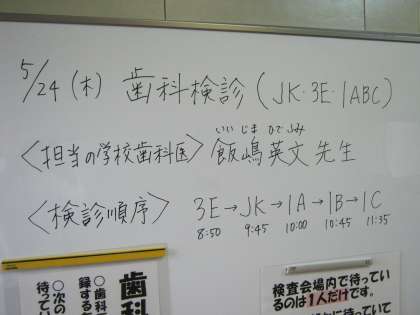 5/24（木） 歯科検診（JK・3E・1ABC）
いい じま ひで ふみ
〈担当の学校歯科医〉飯嶋英文先生
〈検診順序〉 3E→JK→1A→1B→1C
8:50 9:45 10:00 10:45 11:35
歯科
○歯科
録する
○次の
待ってい
検査会場内で待ってい
るのは1人だけです。